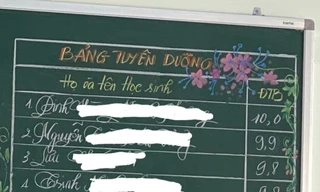 BẢNG TUYÊN DƯƠNG
Họ và tên Học sinh ĐTB
1. Đinh 10,0
2. Nguyễn 9,9
3. Lưu 9,8
4. Trịnh